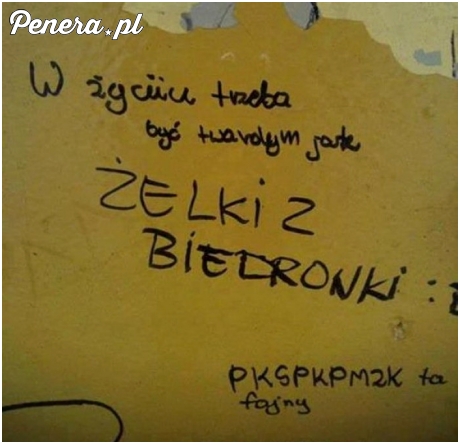 Penera.pl
W życiu trzeba
być twardym jak
ŻELKI Z
BIEDRONKI :
PKSPKPM2K to
fajny